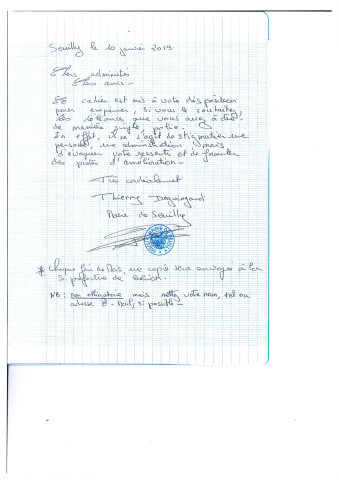 Souilly le 10 janvier 2019
Chers administrés
Chers amis -
Ce cahier est mis à votre disposition
pour exprimer, si vous le souhaitez,
les doléances que vous avez à dire
de manière simple, polie.
En effet, il ne s'agit de stigmatiser une
personne, une administration mais
d'évoquer votre ressenti et de formuler
des pistes d'amélioration -
Très cordialement
Thierry
Maire de Souilly
* Chaque fin de Mois, une copie sera envoyée à la
S. préfecture de
NB : non obligatoire mais mettez votre nom, tel ou
adresse E-mail, si possible -